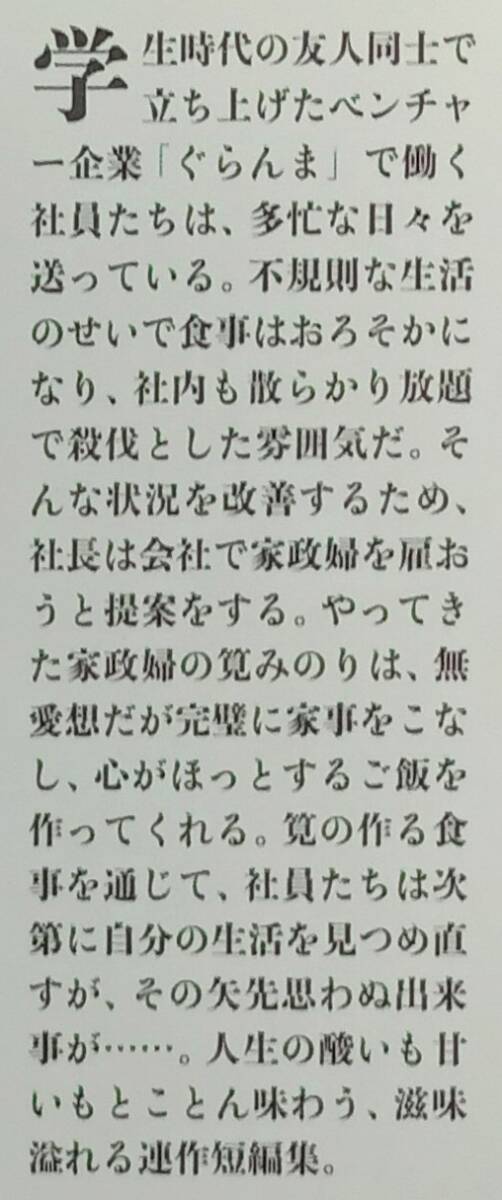 学生時代の友人同士で
立ち上げたベンチャ
ー企業「ぐらんま」で働く
社員たちは、多忙な日々を
送っている。不規則な生活
のせいで食事はおろそかに
なり、社内も散らかり放題
で殺伐とした雰囲気だ。そ
んな状況を改善するため、
社長は会社で家政婦を雇お
うと提案をする。やってき
た家政婦の筧みのりは、無
愛想だが完璧に家事をこな
し、心がほっとするご飯を
作ってくれる。筧の作る食
事を通じて、社員たちは次
第に自分の生活を見つめ直
すが、その矢先思わぬ出来
事が……。人生の酸いも甘
いもとことん味わう、滋味
溢れる連作短編集。